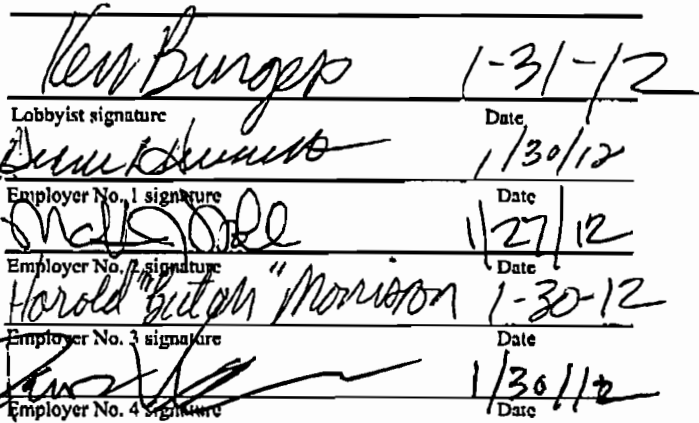 Ken Burgess 1-31-12
Lobbyist signature Date
1/30/12
Employer No. 1 signature Date
1/27/12
Employer No. 2 signature Date
Harold "Butch" Morrison 1-30-12
Employer No. 3 signature Date
1/30/12
Employer No. 4 signature Date